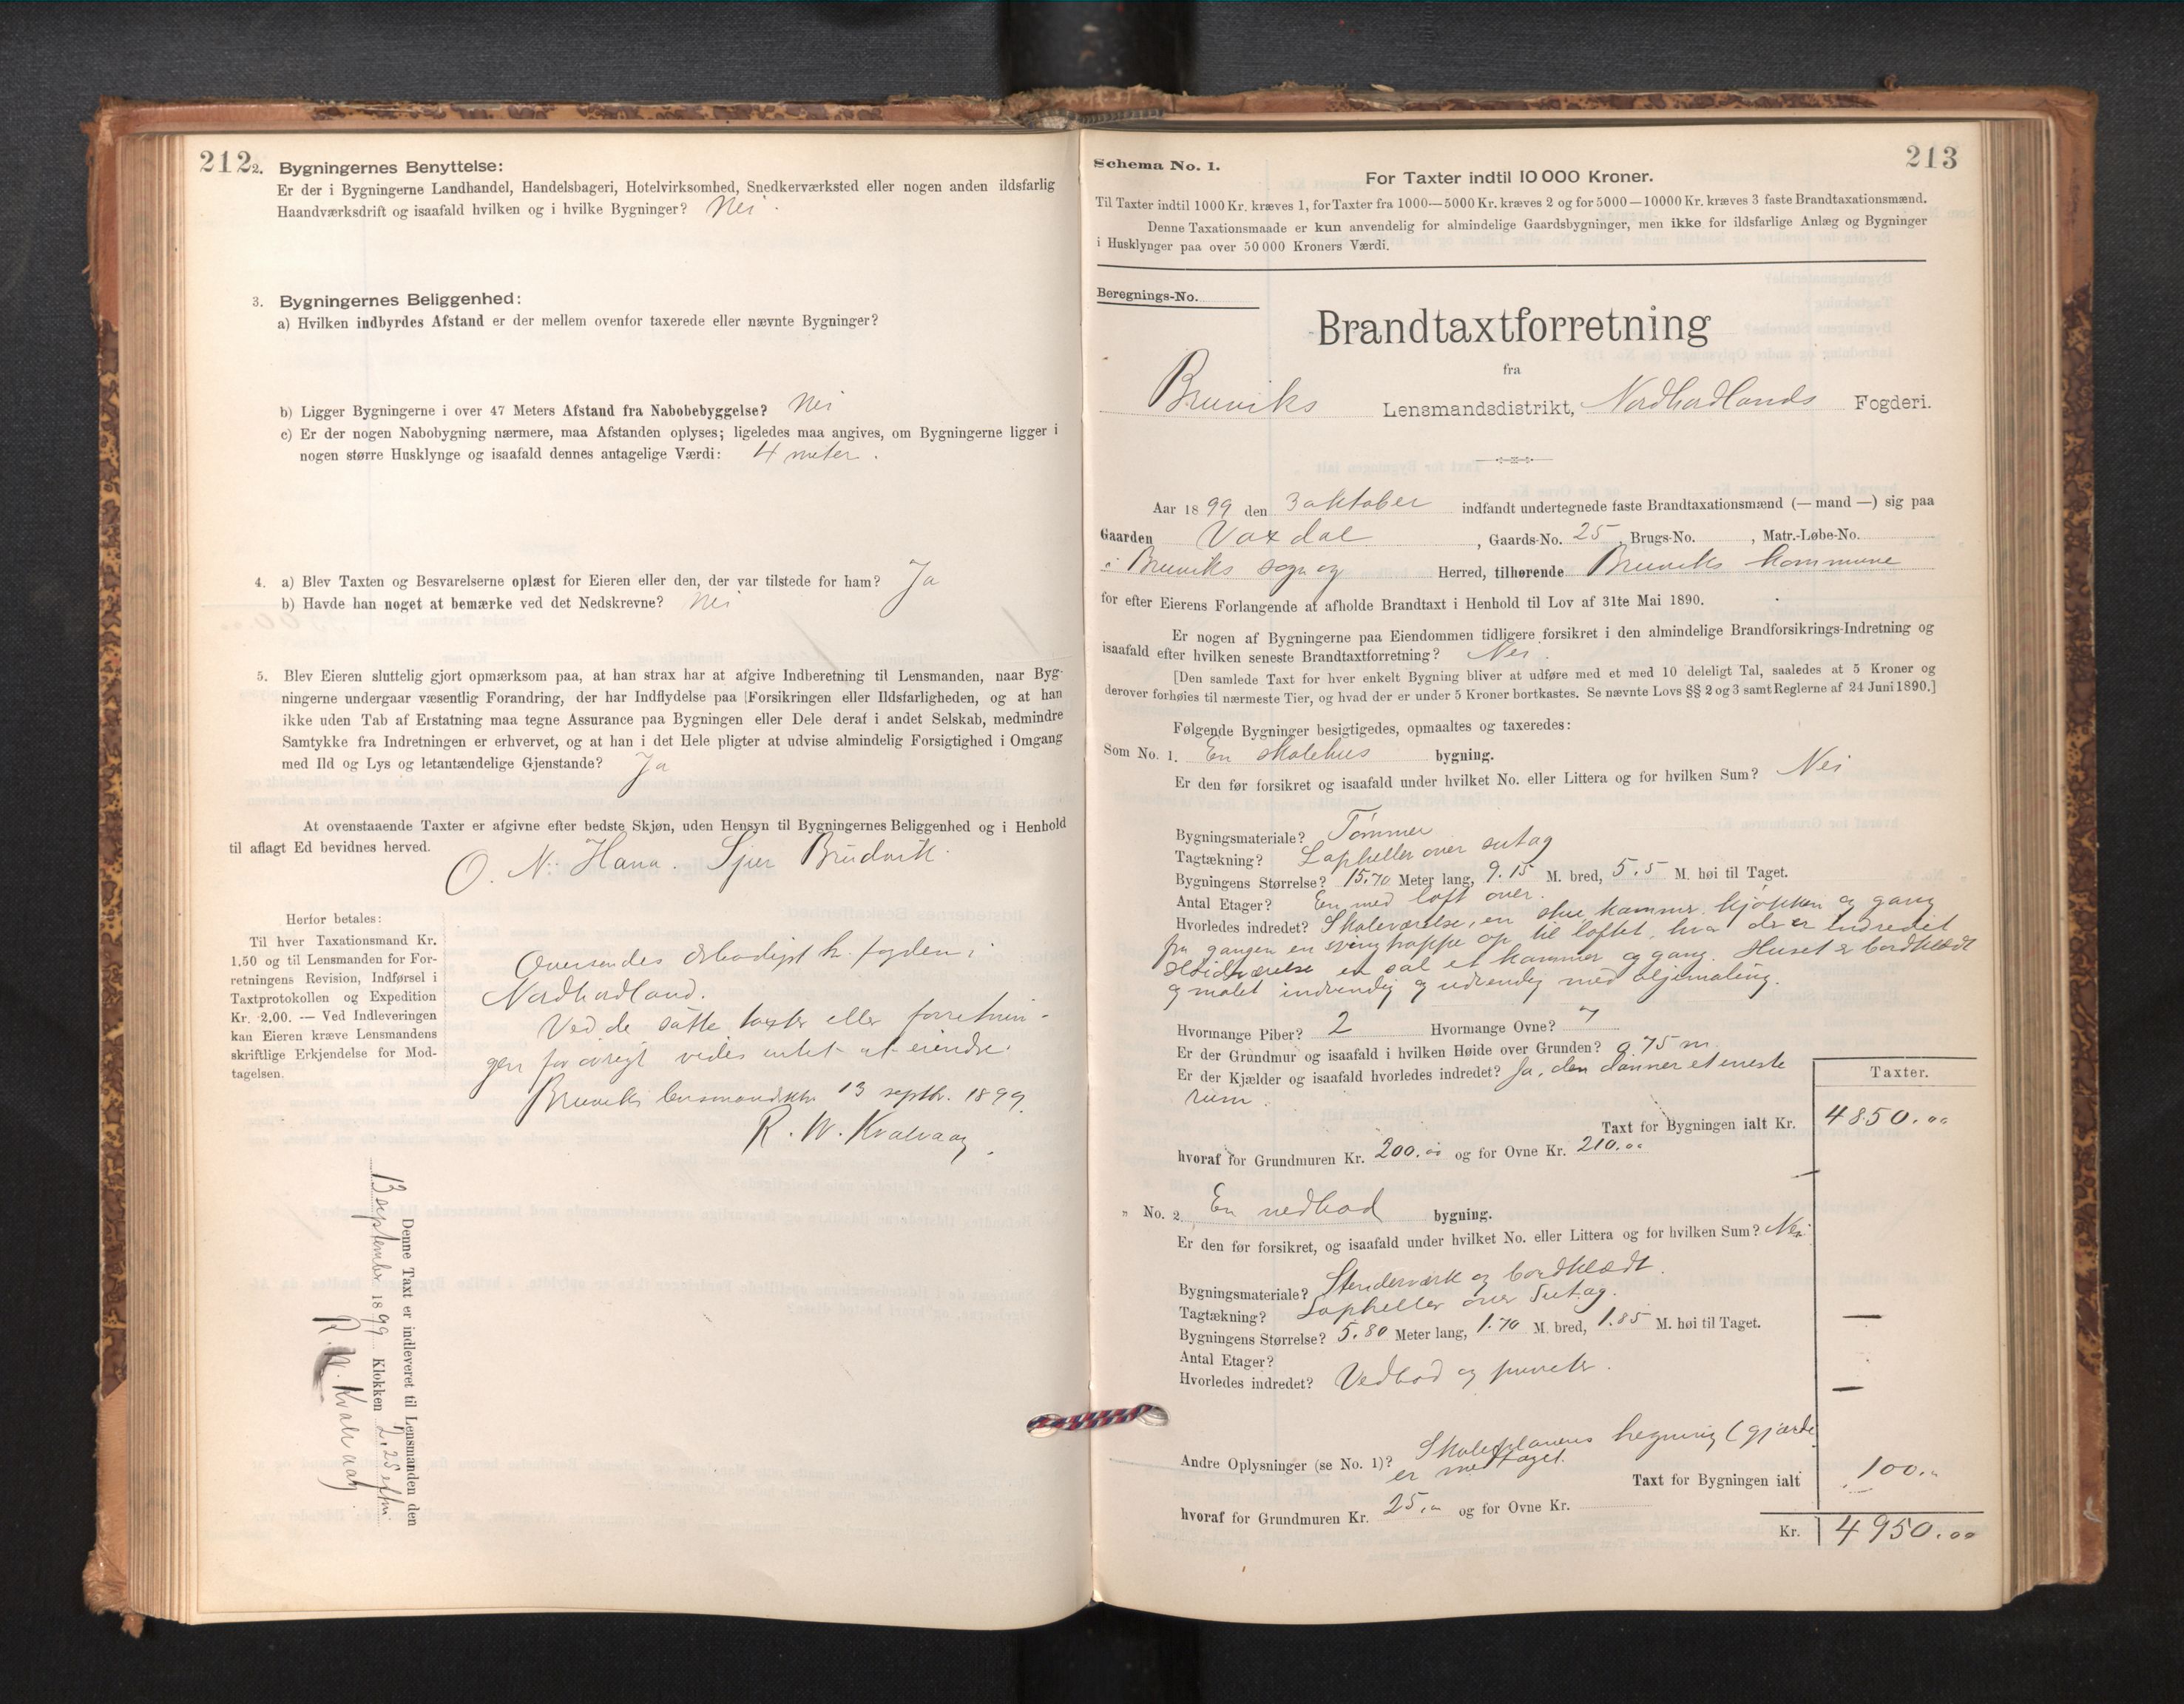 212
2. Bygningernes Benyttelse:
Er der i Bygningerne Landhandel, Handelsbageri, Hotelvirksomhed, Snedkerværksted eller nogen anden ildsfarlig
Haandværksdrift og isaafald hvilken og i hvilke Bygninger? Nei.
3. Bygningernes Beliggenhed:
a) Hvilken indbyrdes Afstand er der mellem ovenfor taxerede eller nævnte Bygninger?
b) Ligger Bygningerne i over 47 Meters Afstand fra Nabobebyggelse? Nei
c) Er der nogen Nabobygning nærmere, maa Afstanden oplyses; ligeledes maa angives, om Bygningerne ligger i
nogen større Husklynge og isaafald dennes antagelige Værdi: 4 meter.
4. a) Blev Taxten og Besvarelserne oplæst for Eieren eller den, der var tilstede for ham? Ja
b) Havde han noget at bemærke ved det Nedskrevne? Nei
5. Blev Eieren sluttelig gjort opmærksom paa, at han strax har at afgive Indberetning til Lensmanden, naar Byg-
ningerne undergaar væsentlig Forandring, der har Indflydelse paa Forsikringen eller Ildsfarligheden, og at han
ikke uden Tab af Erstatning maa tegne Assurance paa Bygningen eller Dele deraf i andet Selskab, medmindre
Samtykke fra Indretningen er erhvervet, og at han i det Hele pligter at udvise almindelig Forsigtighed i Omgang
med Ild og Lys og letantændelige Gjenstande? Ja
At ovenstaaende Taxter er afgivne efter bedste Skjøn, uden Hensyn til Bygningernes Beliggenhed og i Henhold
til aflagt Ed bevidnes herved.
O. N. Hana. Sjur Brudvik.
Herfor betales:
Til hver Taxationsmand Kr.
1,50 og til Lensmanden for For-
retningens Revision, Indførsel i
Taxtprotokollen og Expedition
Kr. 2,00. — Ved Indleveringen
kan Eieren kræve Lensmandens
skriftlige Erkjendelse for Mod-
tagelsen.
Oversendes ærbødigst hr. fogden i
Nordhordland.
Ved de satte taxter eller forretnin-
gen for øvrigt vides intet at erindre.
Bruviks lensmandsktr 13 septbr. 1899.
R. W. Kvalvaag.
Denne Taxt er indleveret til Lensmanden den
13 september 1899 Klokken 2,25 eftm
R. W. Kvalvaag
213
Schema No. 1.
For Taxter indtil 10 000 Kroner.
Til Taxter indtil 1000 Kr. kræves 1, for Taxter fra 1000—5000 Kr. kræves 2 og for 5000—10000 Kr. kræves 3 faste Brandtaxationsmænd.
Denne Taxationsmaade er kun anvendelig for almindelige Gaardsbygninger, men ikke for ildsfarlige Anlæg og Bygninger
i Husklynger paa over 50 000 Kroners Værdi.
Beregnings-No.
Brandtaxtforretning
fra
Bruviks Lensmandsdistrikt, Nordhordlands Fogderi.
Aar 1899 den 3 oktober indfandt undertegnede faste Brandtaxationsmænd (— mand —) sig paa
Gaarden Vaxdal, Gaards-No. 25, Brugs-No. , Matr.-Løbe-No.
i Bruviks sogn og Herred, tilhørende Bruviks kommune
for efter Eierens Forlangende at afholde Brandtaxt i Henhold til Lov af 31te Mai 1890.
Er nogen af Bygningerne paa Eiendommen tidligere forsikret i den almindelige Brandforsikrings-Indretning og
isaafald efter hvilken seneste Brandtaxtforretning? Nei.
[Den samlede Taxt for hver enkelt Bygning bliver at udføre med et med 10 deleligt Tal, saaledes at 5 Kroner og
derover forhøies til nærmeste Tier, og hvad der er under 5 Kroner bortkastes. Se nævnte Lovs §§ 2 og 3 samt Reglerne af 24 Juni 1890.]
Følgende Bygninger besigtigedes, opmaaltes og taxeredes:
Som No. 1. En skolehus bygning.
Er den før forsikret og isaafald under hvilket No. eller Littera og for hvilken Sum? Nei
Bygningsmateriale? Tømmer
Tagtækning? Lapheller over sutag
Bygningens Størrelse? 15.70 Meter lang, 9.15 M. bred, 5.5 M. høi til Taget.
Antal Etager? En med loft over.
Hvorledes indredet? Skoleværelse, en stue, kammer, kjøkken og gang
fra gangen en svingtrappe op til loftet, hvor der er indredet
Sløidværelse en sal et kammer og gang. Huset er bordklædt
og malet indvendig og udvendig med oljemaling.
Hvormange Piber? 2 Hvormange Ovne? 7
Er der Grundmur og isaafald i hvilken Høide over Grunden? 0.75 m
Er der Kjælder og isaafald hvorledes indredet? Ja, den danner et eneste
rum.
Taxter.
Taxt for Bygningen ialt Kr. 4850.00
hvoraf for Grundmuren Kr. 200.00 og for Ovne Kr. 210.00
" No. 2. En vedbod bygning.
Er den før forsikret, og isaafald under hvilket No. eller Littera og for hvilken Sum? Nei
Bygningsmateriale? Stenderværk og bordklædt.
Tagtækning? Lapheller over Sutag.
Bygningens Størrelse? 5.80 Meter lang, 1.70 M. bred, 1.85 M. høi til Taget.
Antal Etager?
Hvorledes indredet? Vedbod og
Andre Oplysninger (se No. 1)? hegning (gjærde
er medtaget.
Taxt for Bygningen ialt 100.
hvoraf for Grundmuren Kr. 25.00 og for Ovne Kr.
Kr. 4950.00